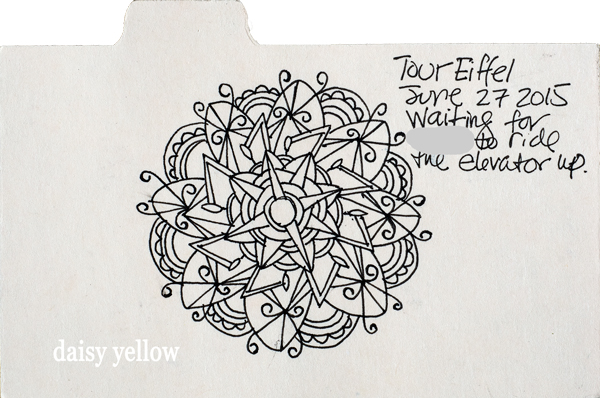 Tour Eiffel
June 27 2015
Waiting for
to ride
the elevator up.
daisy yellow